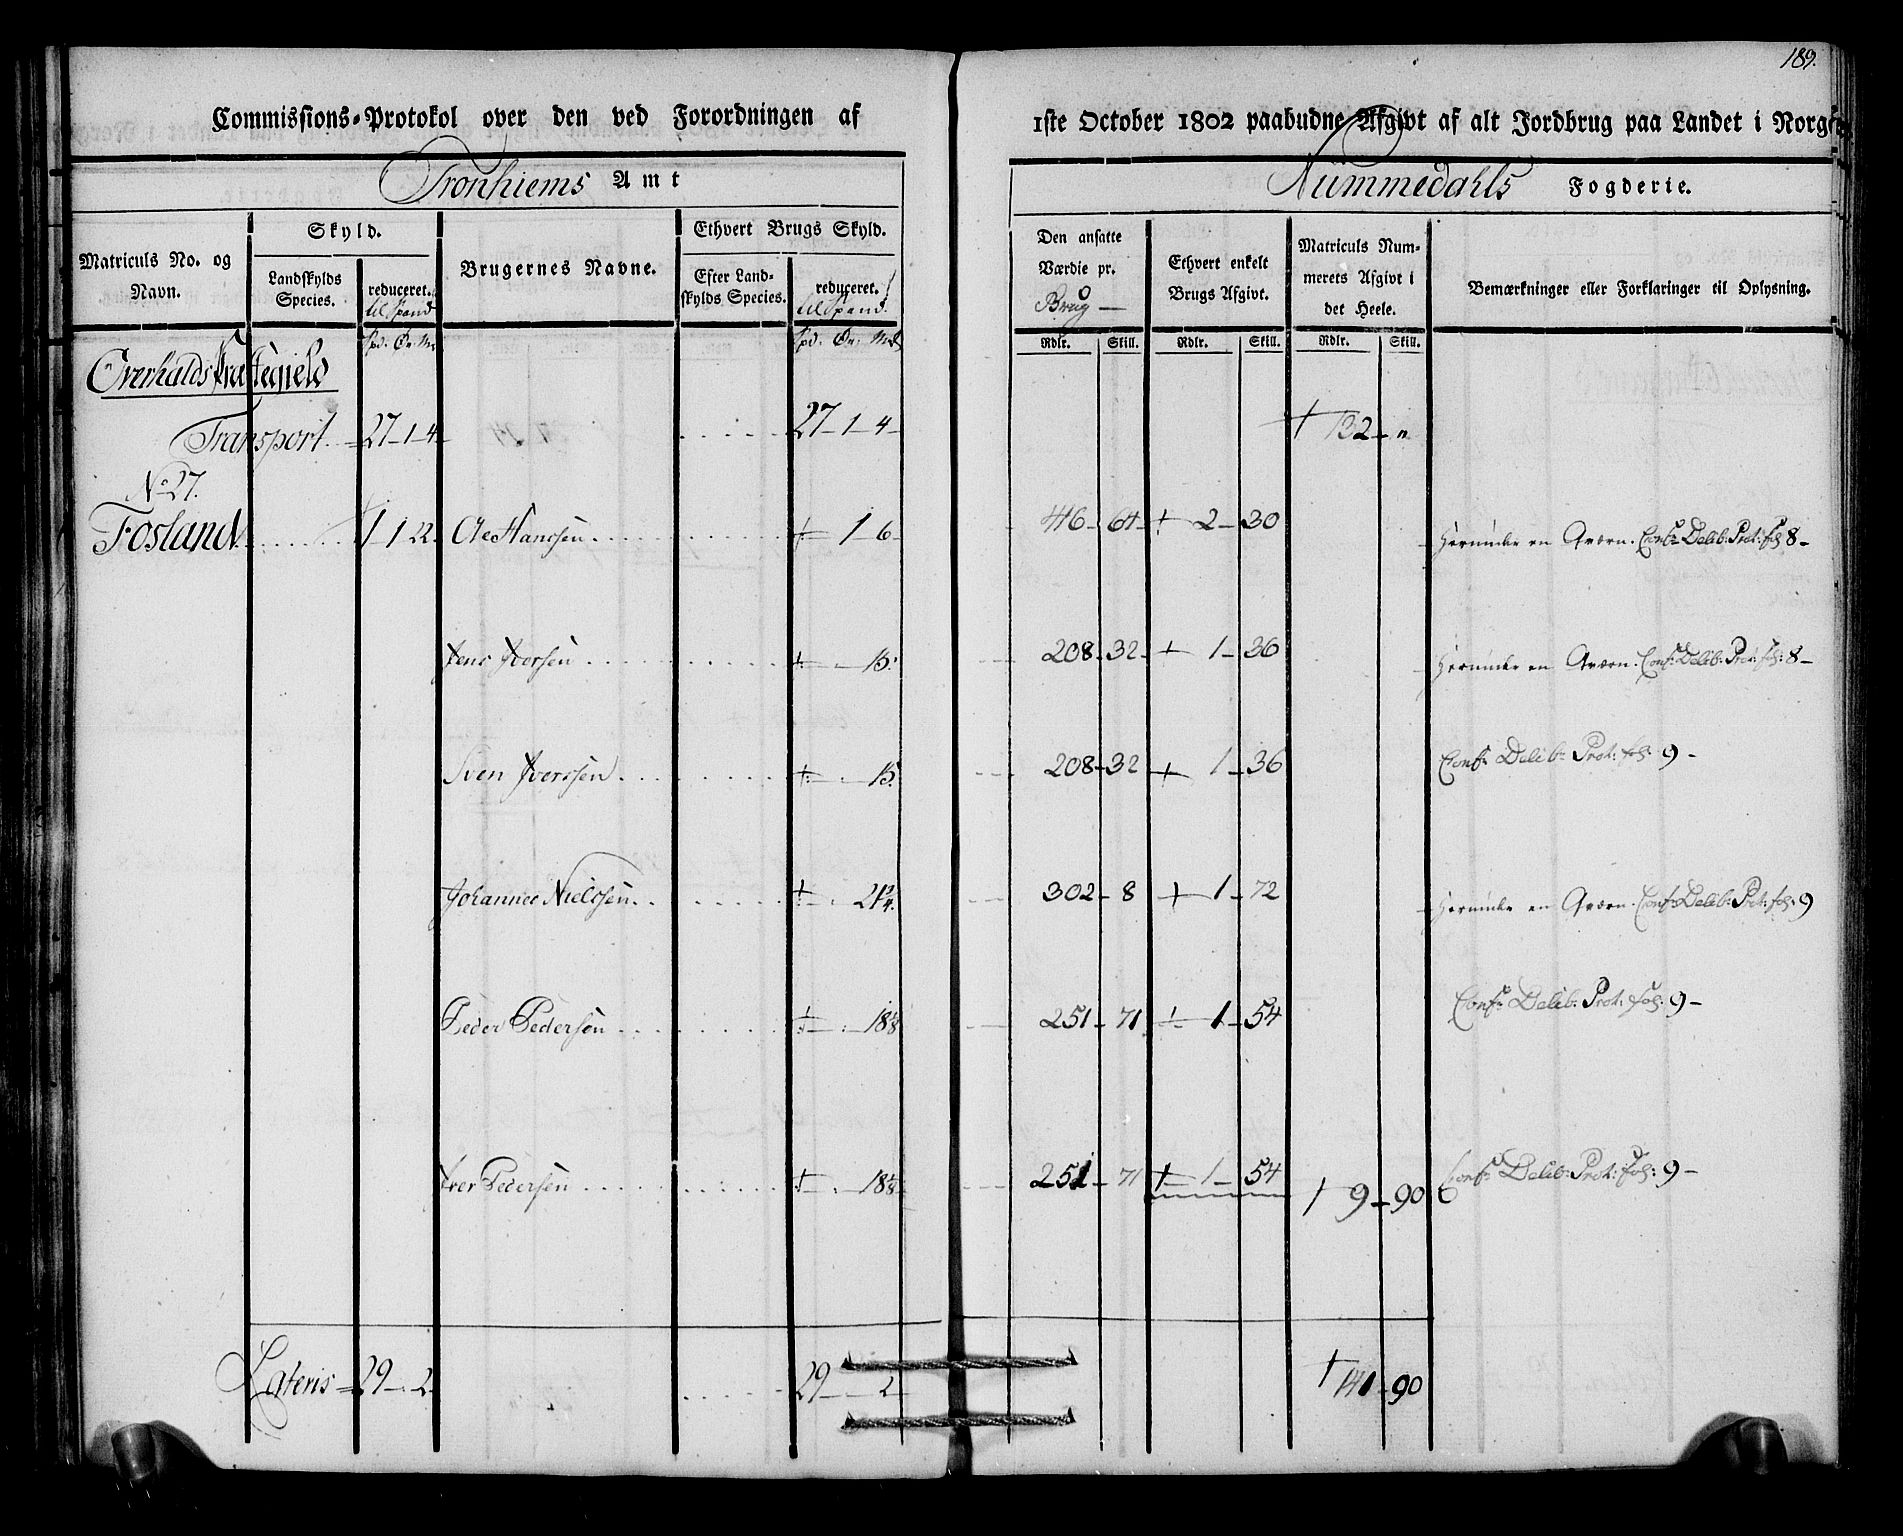 189.
Commissions-Protokol over den ved Forordningen af 1ste October 1802 paabudne Afgivt af alt Jordbrug paa Landet i Norge
Tronhiems Amt
Nummedahls Fogderie.
Matriculs No. og Navn.
Skyld.
Landskylds Species.
reduceret. til Spand
Brugernes Navne.
Ethvert Brugs Skyld.
Efter Landskylds Species.
reduceret. til Spand.
Den ansatte Værdie pr. Brug
Ethvert enkelt Brugs Afgivt.
Matriculs Nummerets Afgivt i det Heele.
Bemærkninger eller Forklaringer til Oplysning.
Spd. Ör: Mr
Spd. Ör: Mrk
Rdlr. Skill. Rdlr. Skill. Rdlr. Skill.
Overhalds Præstegield
Transport 27 - 1 - 4 27 - 1 - 4 132 - "
No 27.
Fosland 1 1 22. Ole Hanssen 1 - 6 - 416 - 64 2 - 30 Herunder en Qværn. Conf: Delib: Prot: fol 8 -
Jens Iversen 15. 208 - 32 1 - 36 Herunder en Qværn. Conf: Delib: Prot: fol: 8 -
Sven Iverssen 15. 208 - 32 1 - 36 Conf: Delib: Prot: fol: 9 -
Johannes Nielssen 21 3/4. 302 - 8 1 - 72 Herunder en Qværn. Conf: Delib: Prot: fol: 9
Peder Pedersen 18 1/8 251 - 71 1 - 54 Conf: Delib: Prot: fol: 9 -
Iver Pedersen 18 1/8 251 - 71 1 - 54 Conf: Delib: Prot: fol: 9 -
9 - 90
Lateris 29 - . 2 29 - 2 141 - 90